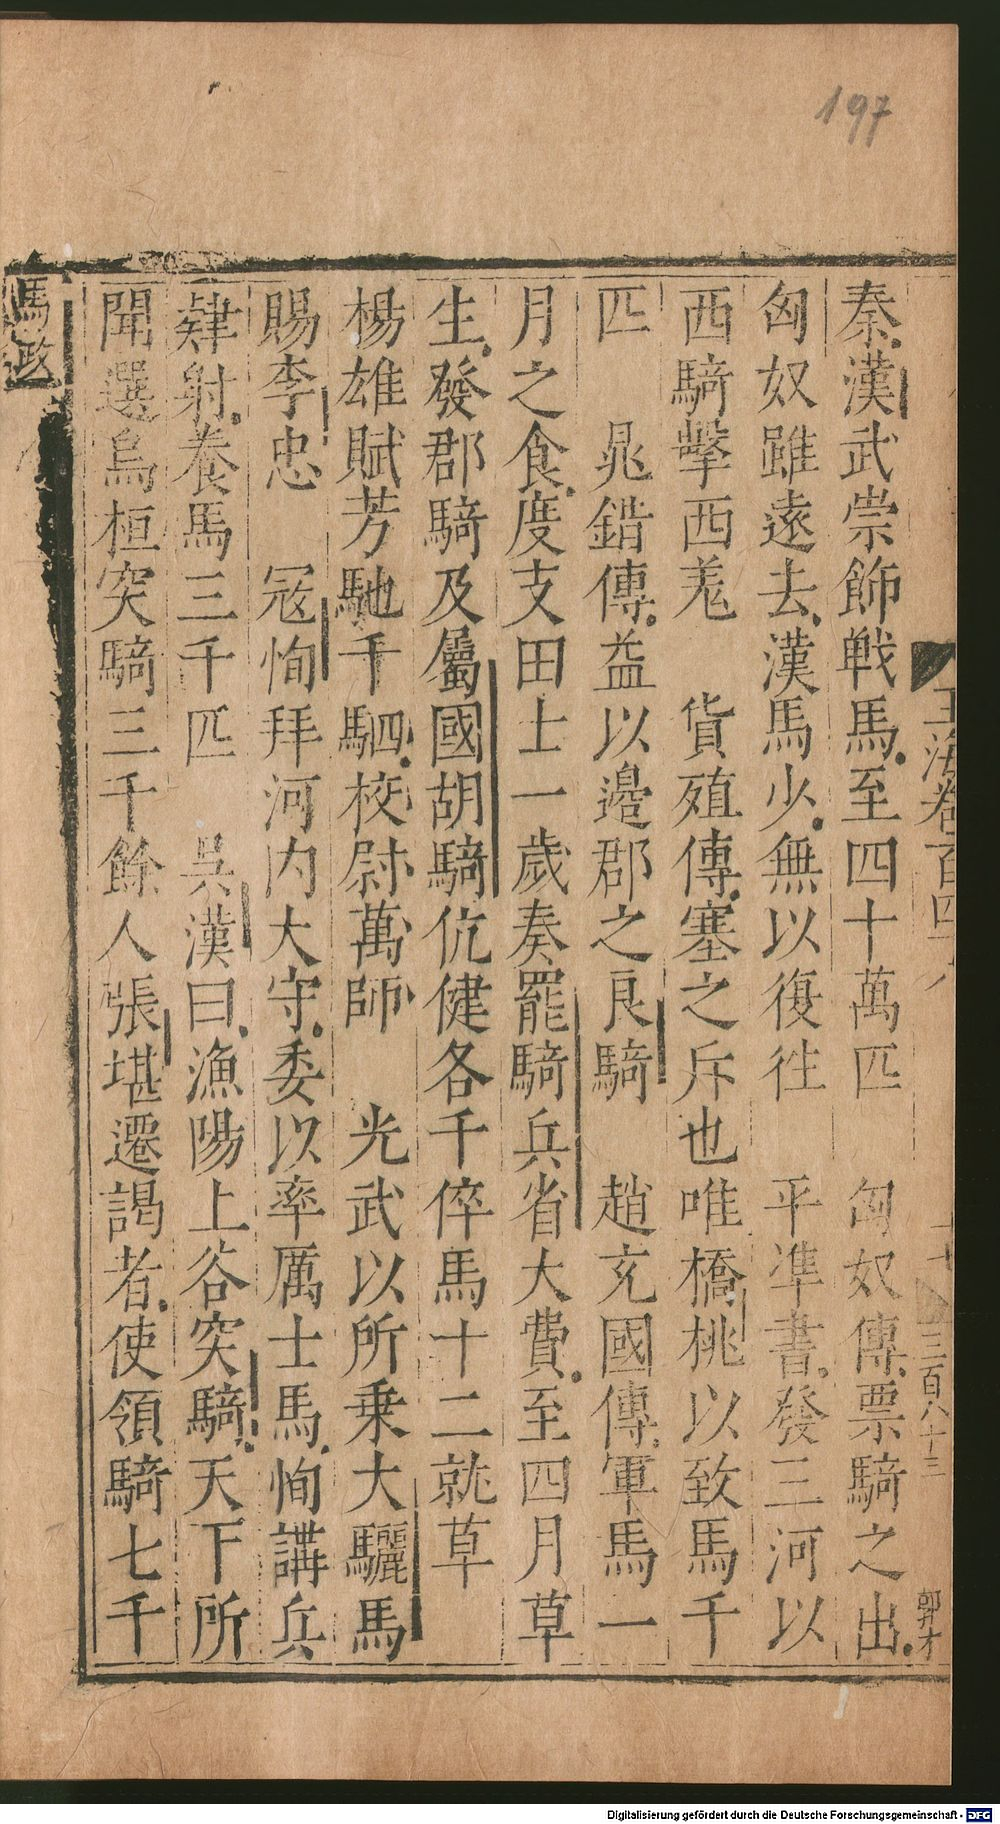 197
秦漢武崇飾戦馬至四十萬匹　匈奴傳票騎之出
匈奴雖遠去漢馬少無以復徃　平準書發三河以
西騎擊西羌　貨殖傳塞之斥也唯橋桃以致馬千
匹　晁錯傳益以邊郡之良騎　趙充國傳軍馬一
月之食度支田士一歲奏罷騎兵省大費至四月草
生發郡騎及屬國胡騎伉健各千倅馬十二就草
楊雄賦芳馳千駟校尉萬師　光武以所乗大驪馬
賜李忠　冦恂拜河内大守委以率厲士馬恂講兵
肄射養馬三千匹　吳漢曰漁陽上谷突騎天下所
聞選烏桓突騎三千餘人張堪遷謁者使領騎七千
馬政
玉海卷百四十八
十七
三百八十三
Digitalisierung gefördert durch die Deutsche Forschungsgemeinschaft - DFG